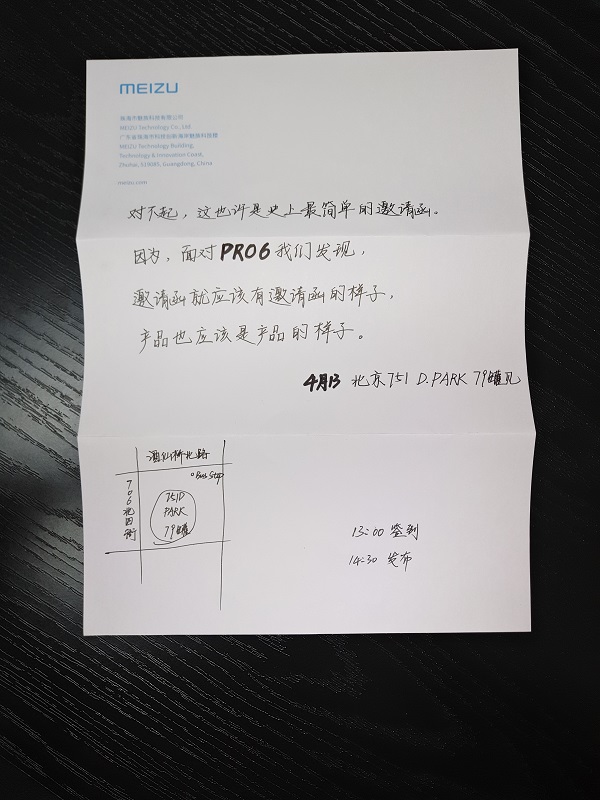 MEIZU
珠海市魅族科技有限公司
MEIZU Technology Co., Ltd.
广东省珠海市科技创新海岸魅族科技楼
MEIZU Technology Building,
Technology & Innovation Coast,
Zhuhai, 519085, Guangdong, China
meizu.com
对不起，这也许是史上最简单的邀请函。
因为，面对PRO6我们发现，
邀请函就应该有邀请函的样子，
产品也应该是产品的样子。
4月13 北京751 D.PARK 79罐见
酒仙桥北路
Bus Stop
706北四街
751D
PARK
79罐
13:00 签到
14:30 发布